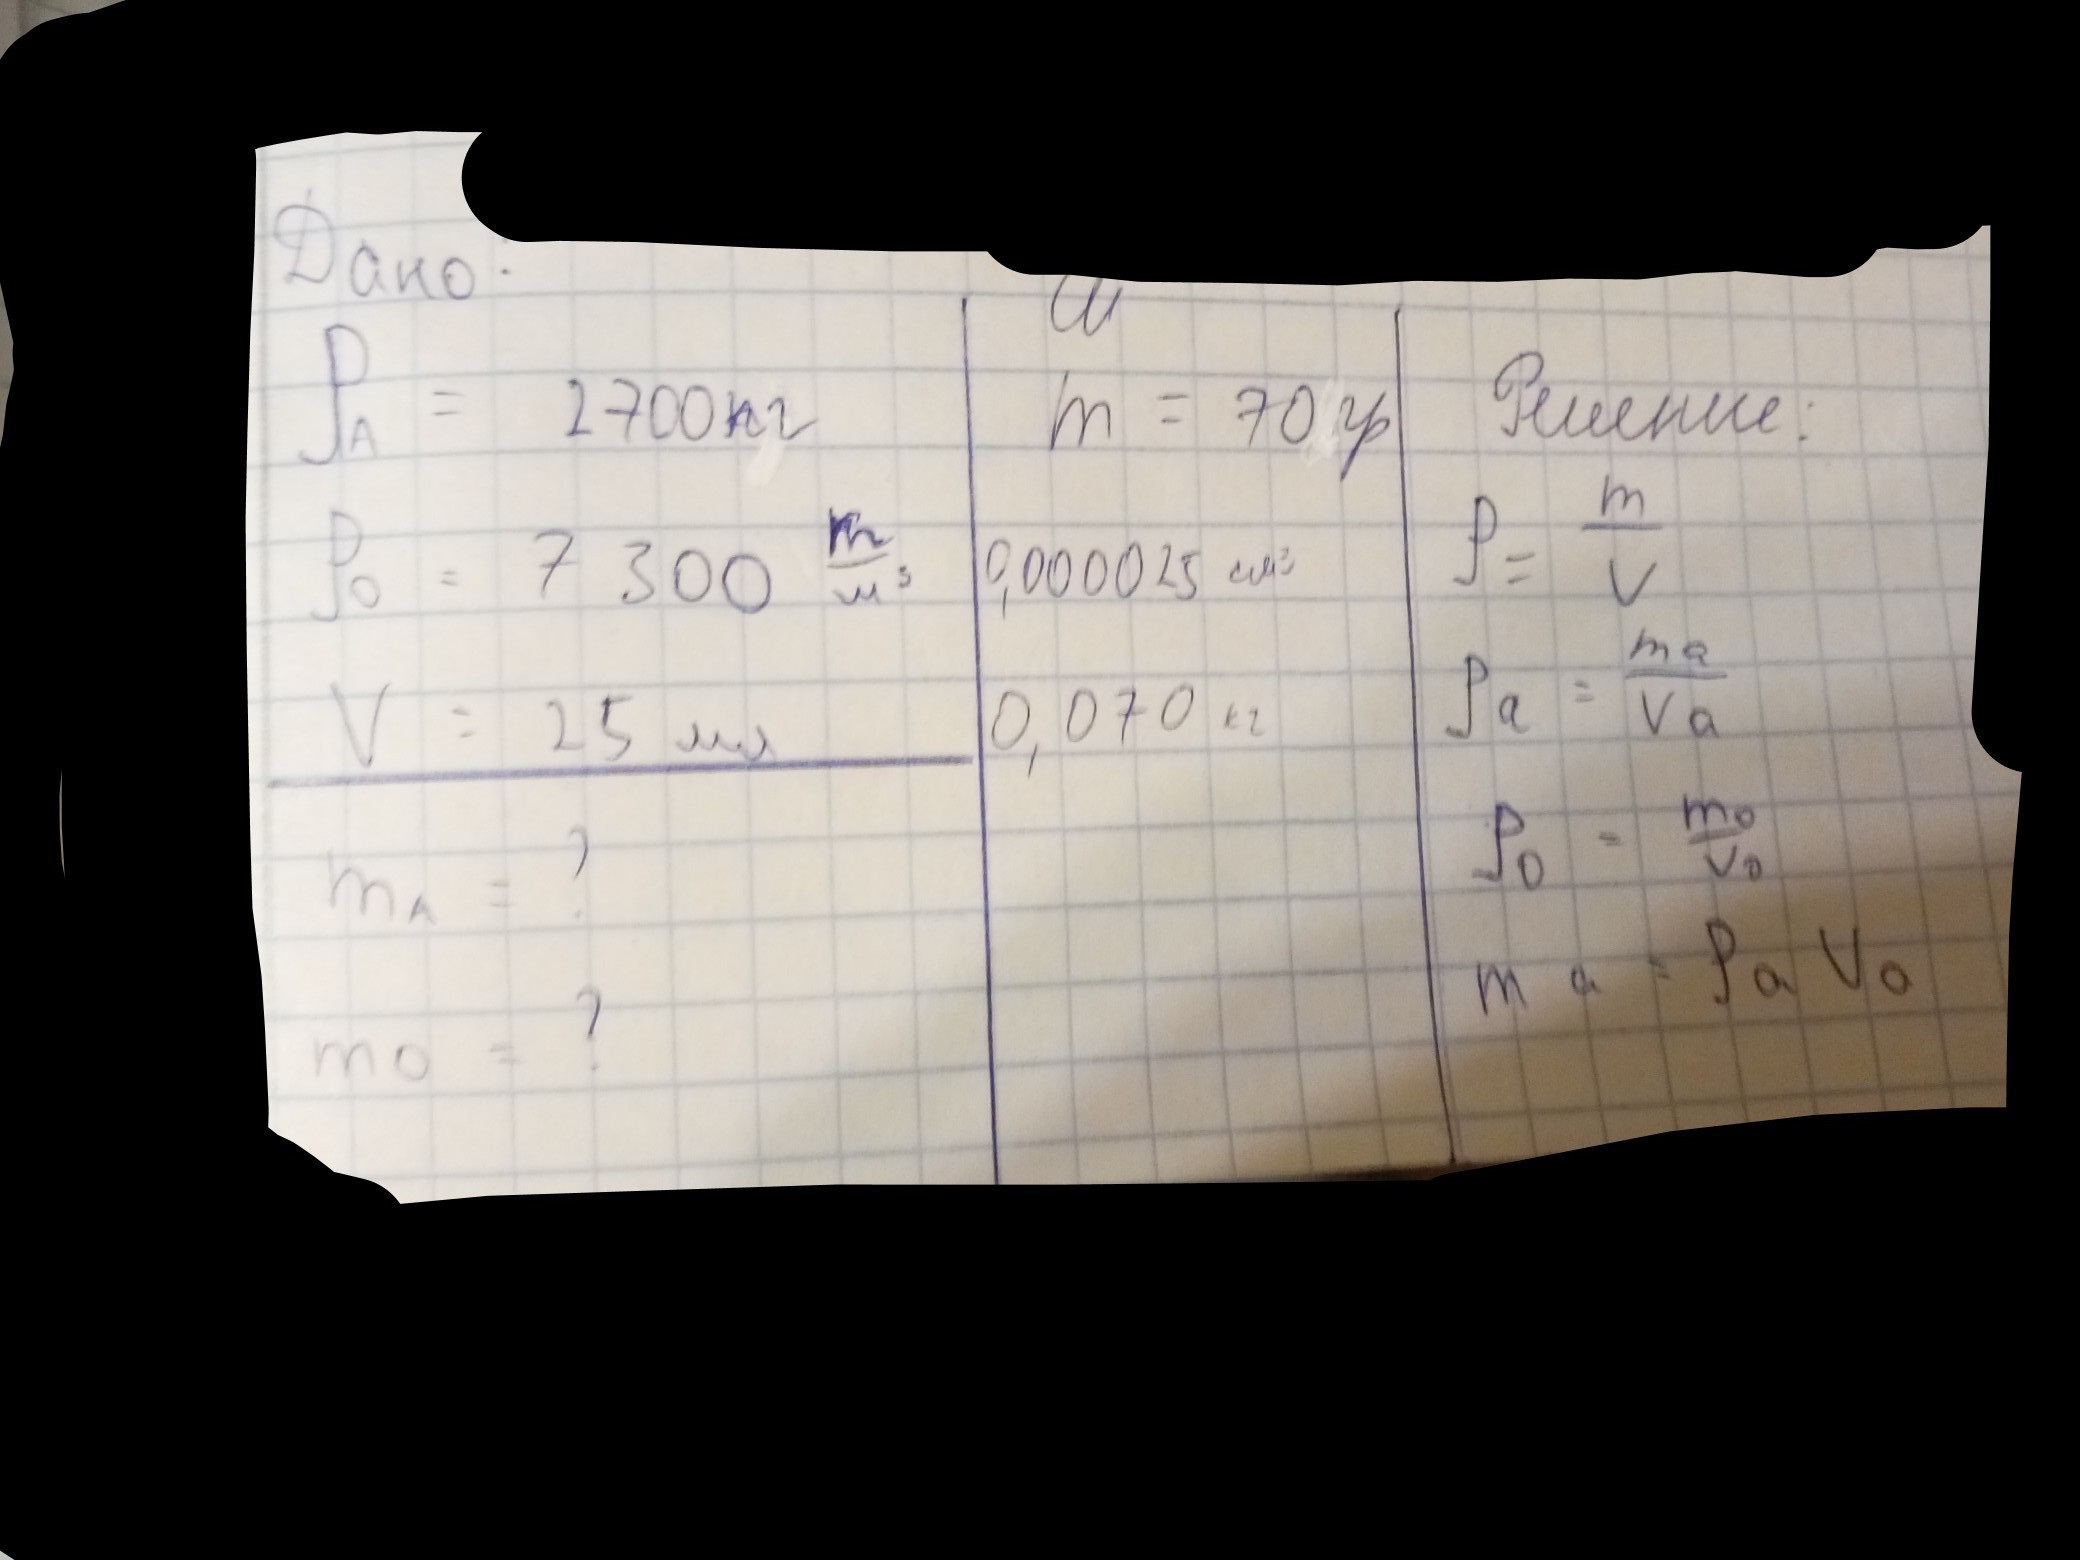 Дано:
ρA = 2700кг
ρO = 7 300 m/м³
V = 25 мл
mA = ?
mO = ?
СИ
m = 70 гр
0,000025 см³
0,070 кг
Решение:
ρ = m/V
ρa = ma/Va
ρo = mo/Vo
ma = ρa Va